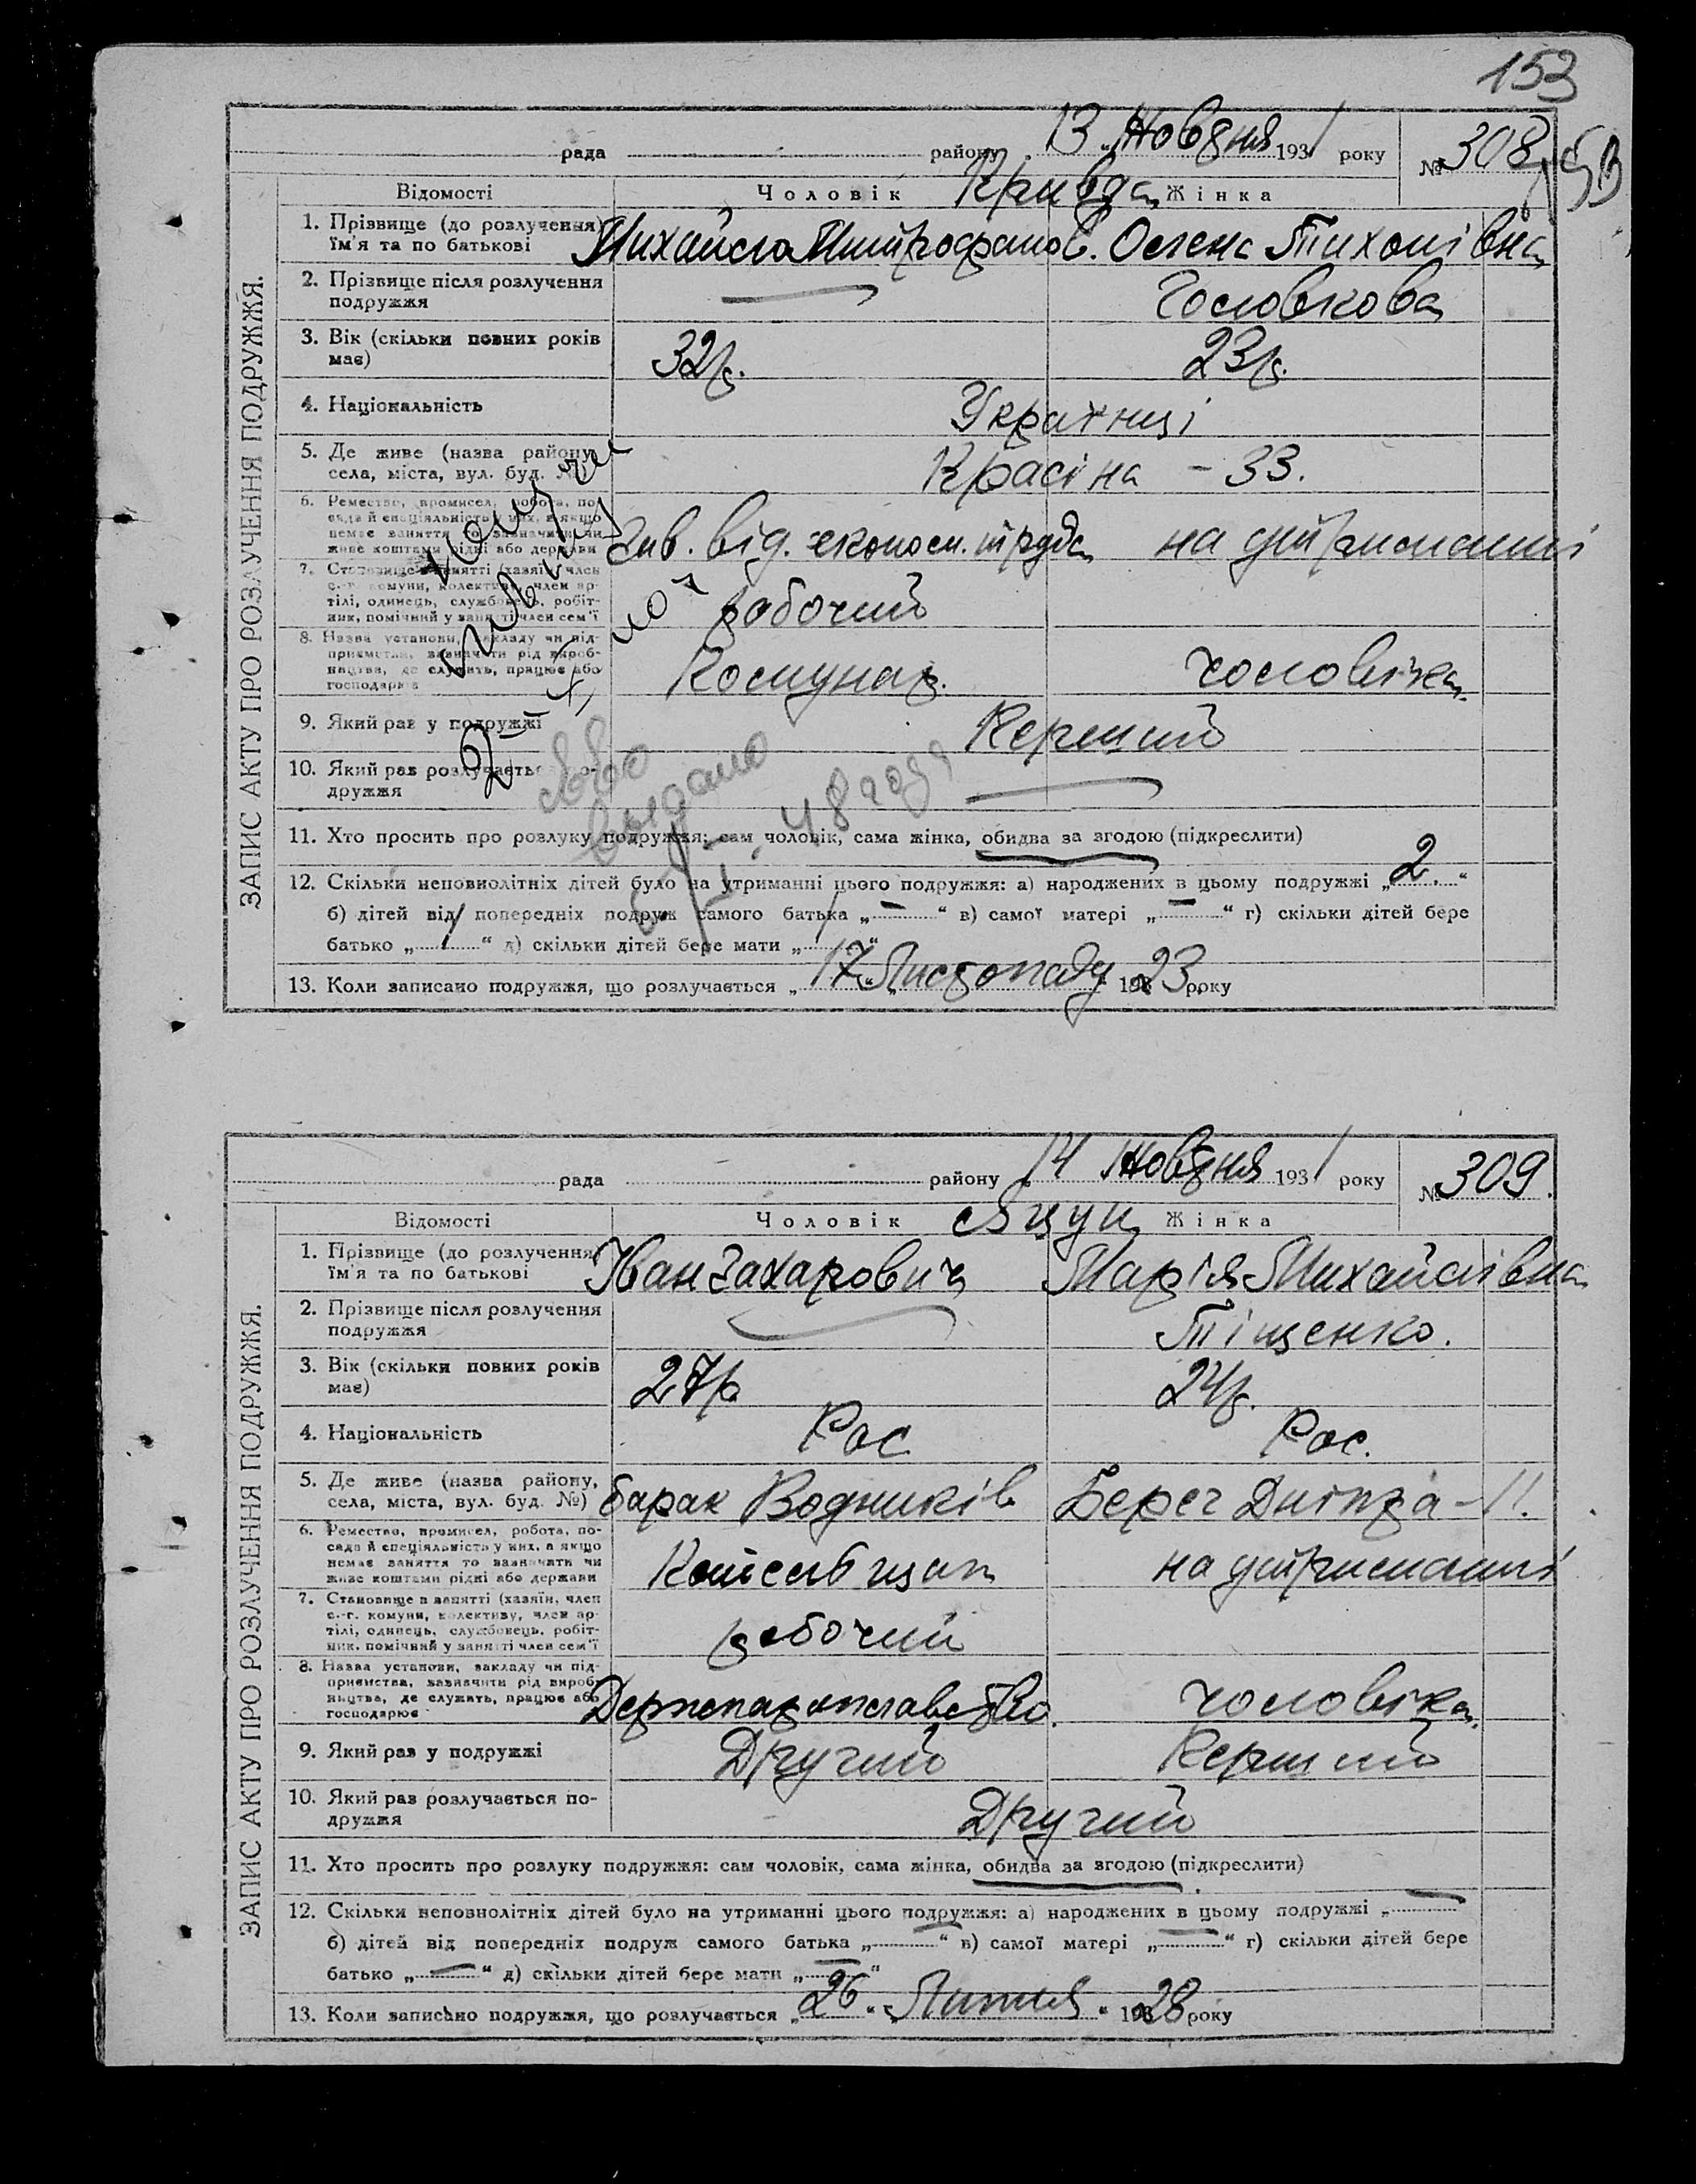 153
рада району 13 Жовтня 1931 року № 308
153
Відомості Чоловік Жінка
Кривда
ЗАПИС АКТУ ПРО РОЗЛУЧЕННЯ ПОДРУЖЖЯ.
1. Прізвище (до розлучення) Михайло Митрофанов. Олена Тихонівна
їм'я та по батькові
2. Прізвище після розлучення — Головкова
подружжя
3. Вік (скільки повних років 32р. 23р.
має)
4. Національність Українці
5. Де живе (назва району, Красіна - 33.
села, міста, вул. буд. №)
6. Ремество, промисел, робота, по-
сада й спеціяльність у них, а якщо Зав. від. економ. труда на утриманні
немає заняття то зазначити чи
живе коштами рідні або держави
7. Становище в занятті (хазяїн, член
с.-г. комуни, колективу, член ар- рабочий
тілі, одинець, службовець, робіт-
ник, помічний у занятті член сем'ї
8. Назва установи, закладу чи під-
приємства, зазначити рід вироб- Комунар. чоловіка
ництва, де служить, працює або
господарює
9. Який раз у подружжі Перший
10. Який раз розлучається по- —
дружжя
выдано
48 года
11. Хто просить про розлуку подружжя: сам чоловік, сама жінка, обидва за згодою (підкреслити)
12. Скільки неповнолітніх дітей було на утриманні цього подружжя: а) народжених в цьому подружжі „2.“
б) дітей від попередніх подруж самого батька „—“ в) самої матері „—“ г) скільки дітей бере
батько „1“ д) скільки дітей бере мати „1“
13. Коли записано подружжя, що розлучається „17“ Листопаду 1923 року
рада району 14 Жовтня 1931 року № 309.
Відомості Чоловік Жінка
Яцун
ЗАПИС АКТУ ПРО РОЗЛУЧЕННЯ ПОДРУЖЖЯ.
1. Прізвище (до розлучення) Іван Захарович Марія Михайлівна
їм'я та по батькові
2. Прізвище після розлучення — Тіщенко.
подружжя
3. Вік (скільки повних років 27р 24р.
має)
4. Національність Рос Рос.
5. Де живе (назва району, барак Водників Берег Дніпра - 11.
села, міста, вул. буд. №)
6. Ремество, промисел, робота, по-
сада й спеціяльність у них, а якщо на утриманні
немає заняття то зазначити чи
живе коштами рідні або держави
7. Становище в занятті (хазяїн, член
с.-г. комуни, колективу, член ар- рабочий
тілі, одинець, службовець, робіт-
ник, помічний у занятті член сем'ї
8. Назва установи, закладу чи під-
приємства, зазначити рід вироб- чоловіка.
ництва, де служить, працює або Держпароплавство.
господарює
9. Який раз у подружжі Другий Перший
10. Який раз розлучається по- Другий
дружжя
11. Хто просить про розлуку подружжя: сам чоловік, сама жінка, обидва за згодою (підкреслити)
12. Скільки неповнолітніх дітей було на утриманні цього подружжя: а) народжених в цьому подружжі „—
б) дітей від попередніх подруж самого батька „—“ в) самої матері „—“ г) скільки дітей бере
батько „—“ д) скільки дітей бере мати „—“
13. Коли записано подружжя, що розлучається „26“ Липня 1928 року